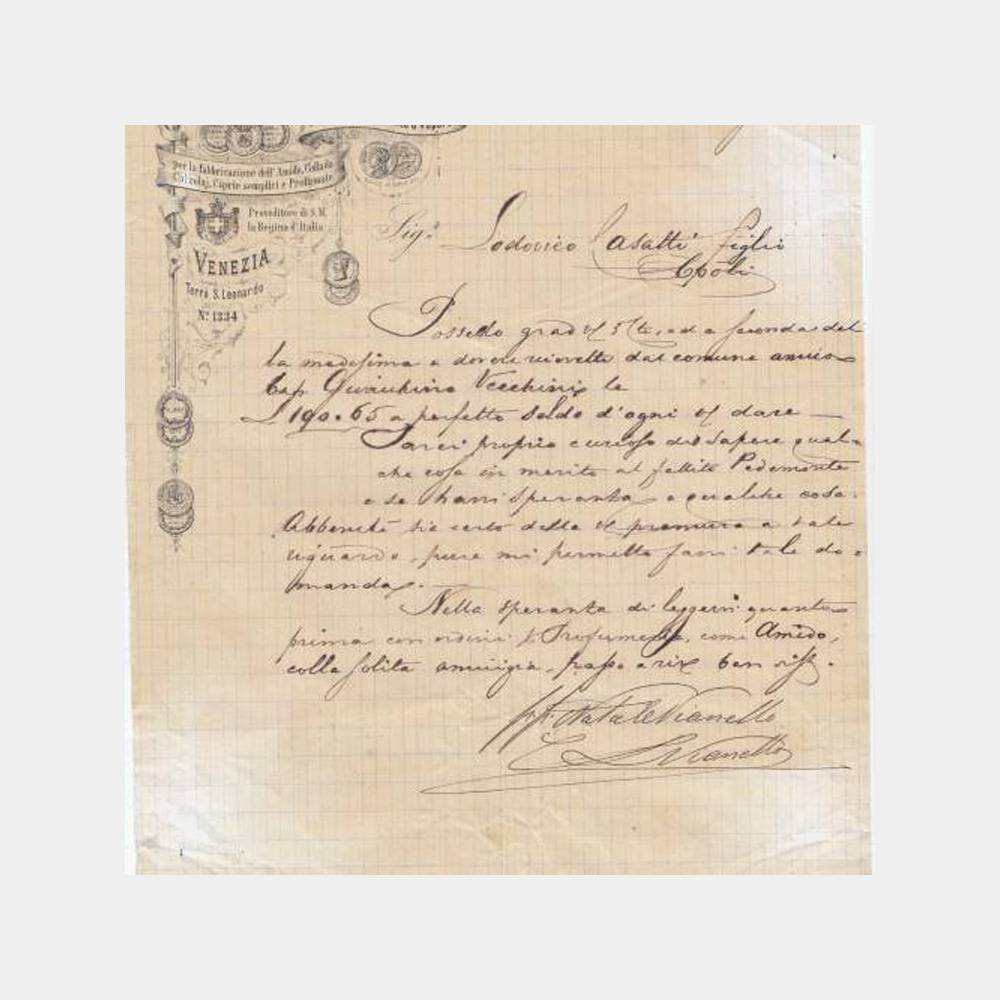 a Vapore
per la fabbricazione dell' Amido, Colla da
Calzolaj, Ciprie semplici e Profumate
Proveditore di S. M.
la Regina d'Italia
VENEZIA
Terrà S. Leonardo
N.º 1334
Sig.ʳ Lodovico Casatti figlio
Possedo grad
la medesima a dovere dal comune amico
Cap. Vecchini le
£ 190.65 a perfetto saldo d'ogni dare —
Sarei proprio curioso di sapere qual=
che cosa in merito al fallito Pedemonte
e se havvi speranza a qualche cosa.
Abbenchè sia certo della premura a tale
riguardo, pure mi permetto farvi tale do=
manda.
Nella speranza di leggervi quanto
prima con ordini Profumeria, come Amido,
colla solita amicizia, passo a
Natale Vianello
Vianello